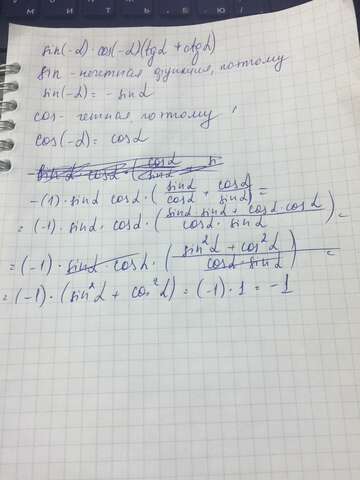 sin(-α)·cos(-α)(tgα + ctgα)
sin - нечетная функция, поэтому
sin(-α) = - sinα
cos - четная, поэтому
cos(-α) = cosα
-(1)·sinα cosα·(sinα/cosα + cosα/sinα) =
= (-1)·sinα·cosα·((sinα·sinα + cosα·cosα)/(cosα·sinα)) =
= (-1)·sinα·cosα·((sin²α + cos²α)/(cosα·sinα)) =
= (-1)·(sin²α + cos²α) = (-1)·1 = -1